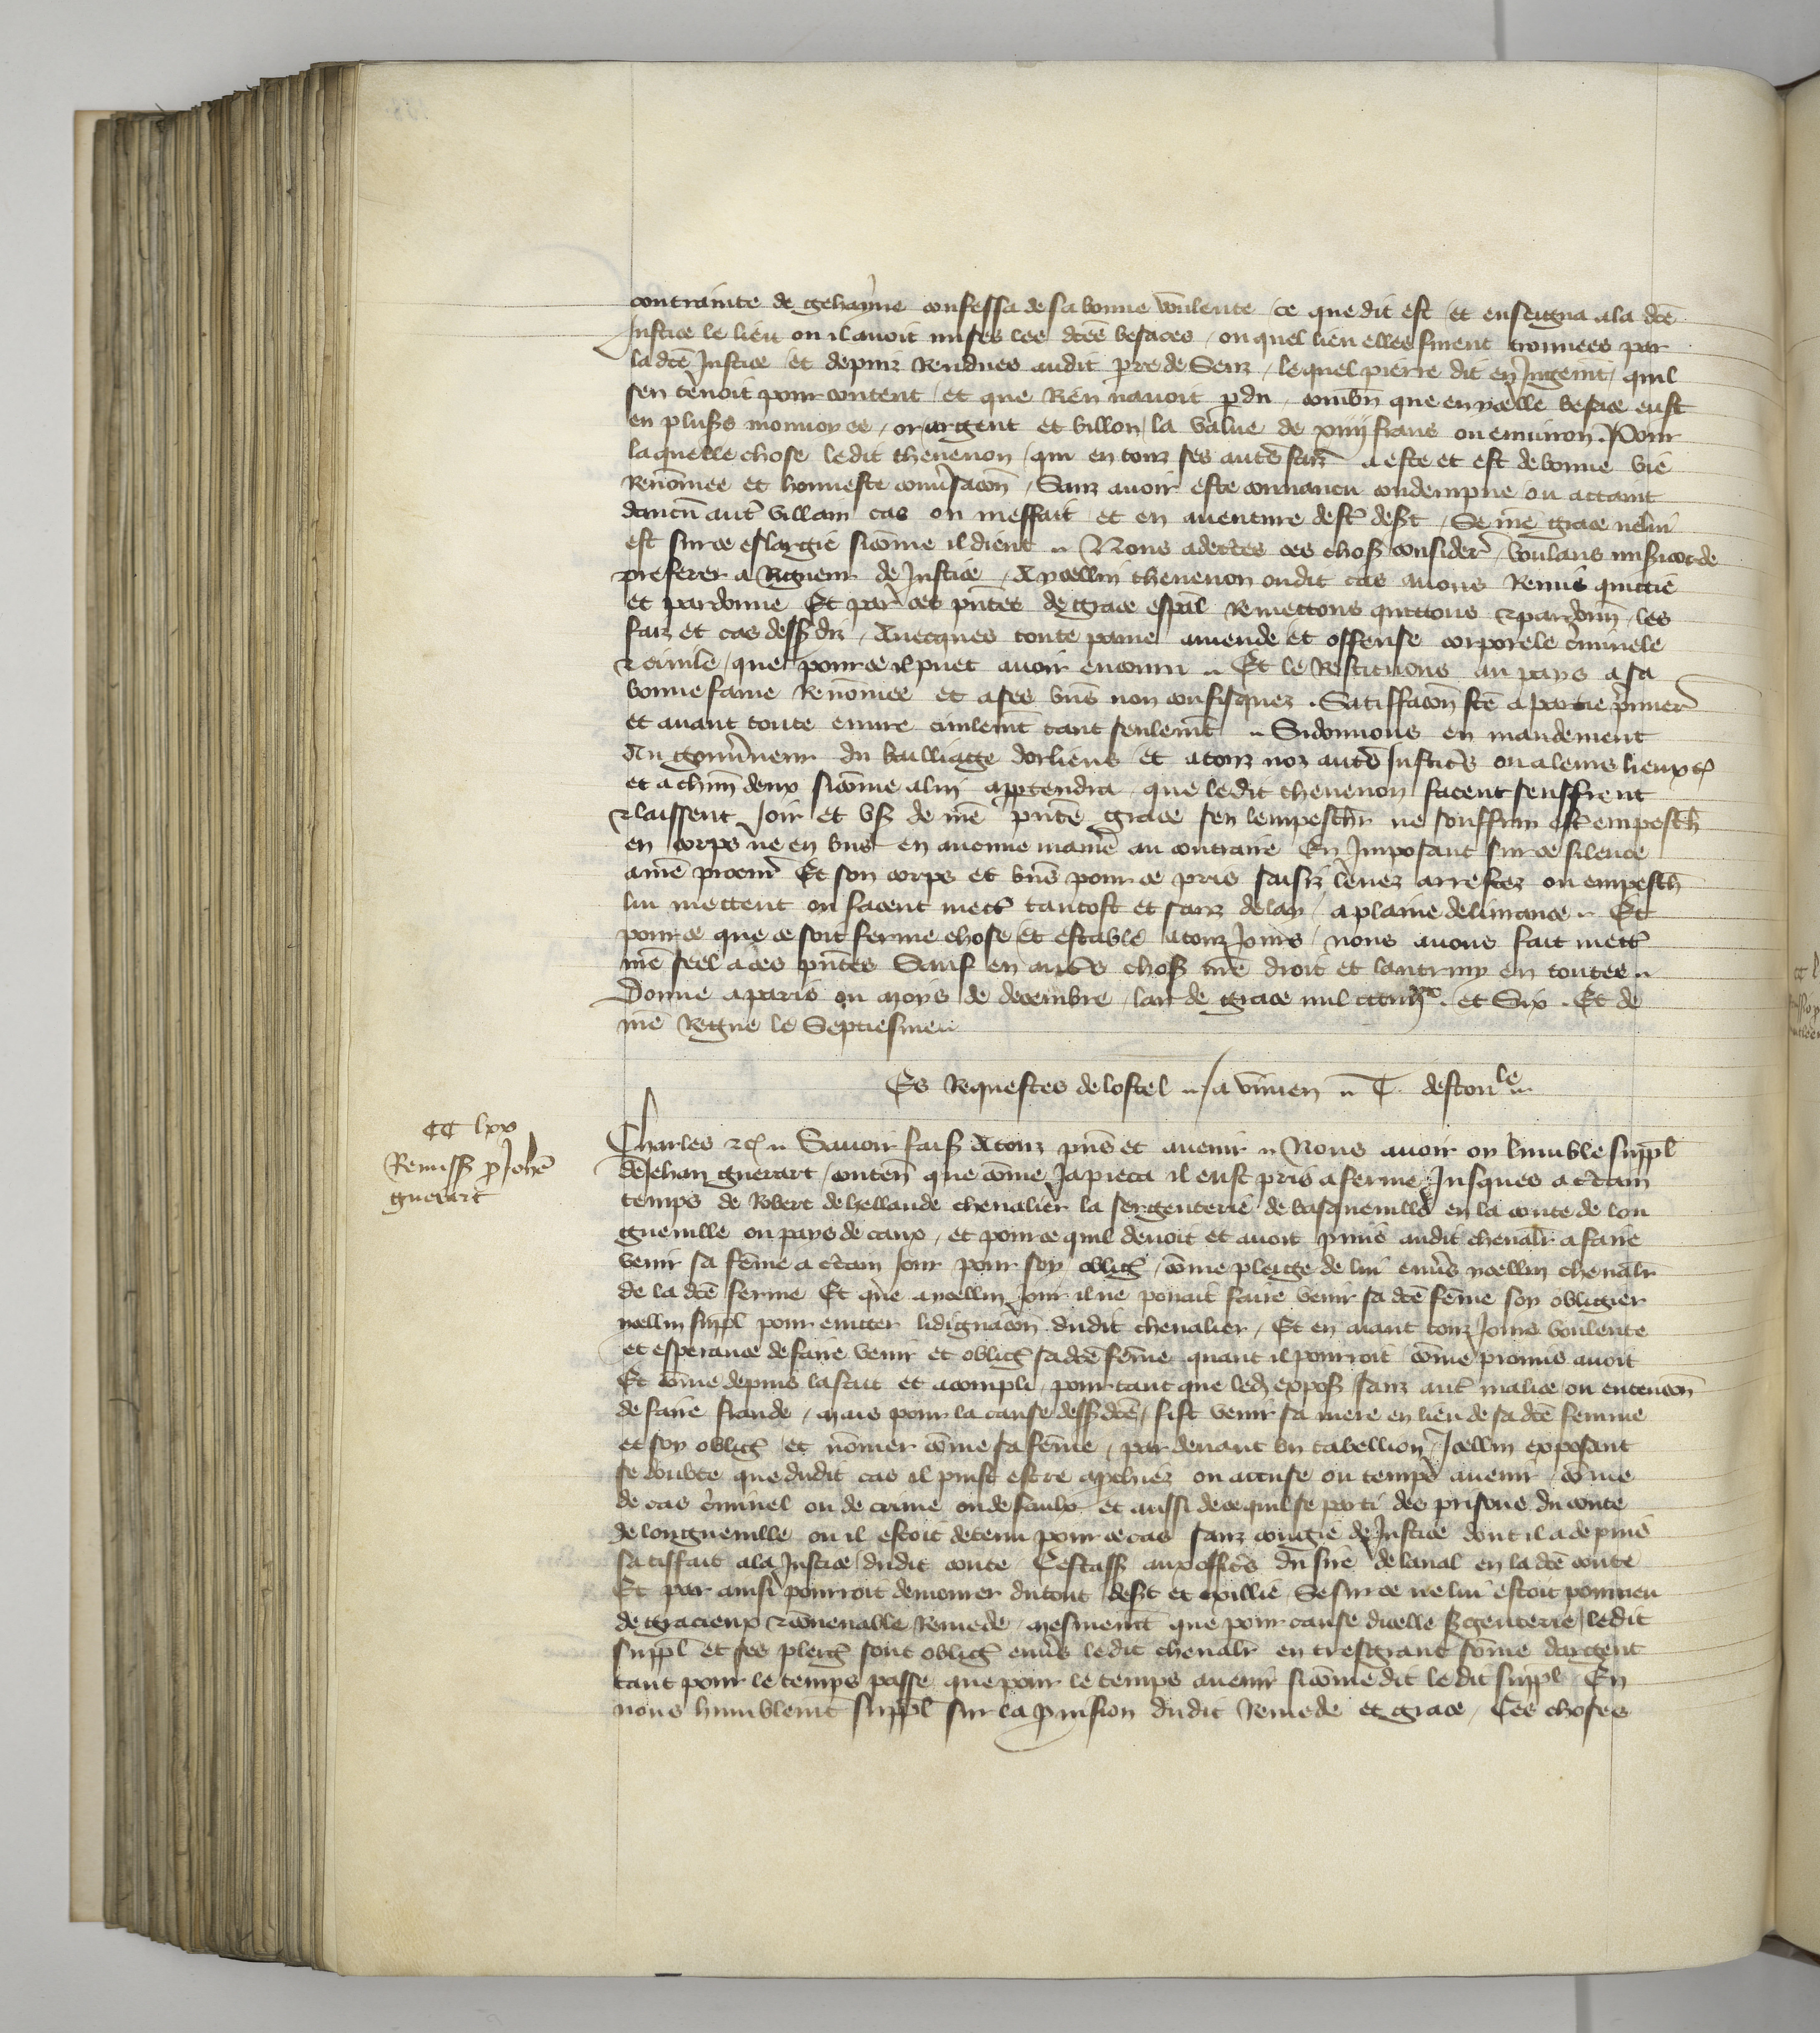 contrainte de gehayne confessa de sa bonne voulente ce que dit est et enseigna a la dcē
Justice le lieu ou il avoit mises les dcēs besaces / ou quel lieu elles furent trouvees par
la dcē Justice et depuiz Rendues audit prē de Senz / lequel pierre dit en Jugemt quil
sen tenoit pour content / et que Rien navoit pdu / combn que en ycelle besace eust
en plusrs monnoyes / or argent et billon / la value de xviij frans ou environ. Pour
laquelle chose ledit thevenon / qui en touz ses autres faiz a este et est de bonne vie
Renōmee et honneste convsacōn / Sanz avoir este convaincu condempne ou actaint
daucun autre villain cas ou meffait et en aventure destre desrt / Se nrē grace ne lui
est sur ce eslargie sicōme il dient .. Nous adectes ces choses consider voulans misericorde
preferer a Rigueur de Justice / A ycellui thevenon ou dit cas avons Remis quictie
et pardonne Et par ces pntes de grace espal Remettons quictons & pardonn / les
faiz et cas dess diz / Avecques toute paine amende et offense corporele criminele
& civile / que pour ce il puet avoir encouru .. Et le Restituons au pays a sa
bonne fame Renōmee et a ses biens non confisquez . Satisfacōn fcē a partie primier
et avant toute euvre civilemt tant seulemt .. Si donnons en mandement
Au gouvneur du bailliage dorliens et a touz noz autres Justiciers ou a leurs lieux
et a chun deux sicōme a lui appartendra / que ledit thevenon facent seuffrent
& laissent Joir et user de nrē pnte grace sen lempeschr ne souffrir estre empesch
en corps ne en biens en aucune maniere au contraire En Imposant sur ce silence
a nrē procur Et son corps et biens pour ce pris saisiz levez arrestez ou empesch
lui mettent ou facent mettre tantost et sanz delay / a plaine delivrance .. Et
pour ce que ce soit ferme chose et estable a touz Jours / nous avons fait mettre
nrē seel a ces pntes Sauf en autres choses nrē droit et lautruy en toutes ..
Donne a paris ou moys de decembre / lan de grace mil ccc iiijxx . et Six . Et de
nrē Regne le Septiesme ..
Es Requestes de lostel .. Ja vinien .. T. destoule ..
CC lxx
Remiss p Johē
guerart
Charles &c .. Savoir fais A touz pns et avenir .. Nous avoir oy lumble suppl
de Jehan guerart / conten que cōme Ja pieca il eust pris a ferme Jusques a ctain
temps de Robert de hellande chevalier la sergenterie de basqueville en la conte de lon
gueville ou pays de caux / et pour ce quil devoit et avoit pmis audit chevalr a faire
venir sa fēme a ctain Jour pour soy oblig / cōme pleige de lui envs ycellui chevalr
de la dcē ferme Et que a ycellui Jour il ne povait faire venir sa dcē fēme soy obligier
ycellui suppl pour eviter lidignacōn dudit chevalier / Et en aiant touz Jours voulente
et esperance de faire venir et oblig sa dcē fēme quant il pourroit cōme promis avoit
Et cōme depuis la fait et acompli / pour tant que led expos sanz autre malice ou entencōn
de faire fraude / mais pour la cause dess dcē / fist venir sa mere en lieu de sa dcē femme
et soy oblig et nōmer cōme sa fēme / par devant un tabellion / Icellui exposant
se doubte que dudit cas il puist estre aprchiez ou accuse ou temps avenir / cōme
de cas criminel ou de crime ou de faulx et aussi de ce quil se parti des prisons du conte
de longueville ou il estoit detenu pour ce cas sanz congie de Justice dont il a depuis
satisffait a la Justice dudit conte / Cestass aux officrs du sire de laval en la dcē conte
Et par ainsi pourroit demourer du tout desrt et exillie / Se sur ce ne lui estoit pourveu
de gracieux & convenable Remede / mesmemt que pour cause dicelle sgenterie / ledit
suppl et ses pleig sont oblig envs ledit chevalr en tresgrant sōme dargent
tant pour le temps passe que pour le temps avenir sicōme dit le dit suppl / En
nous humblemt suppl sur la pvision dudit Remede et grace / Ces choses